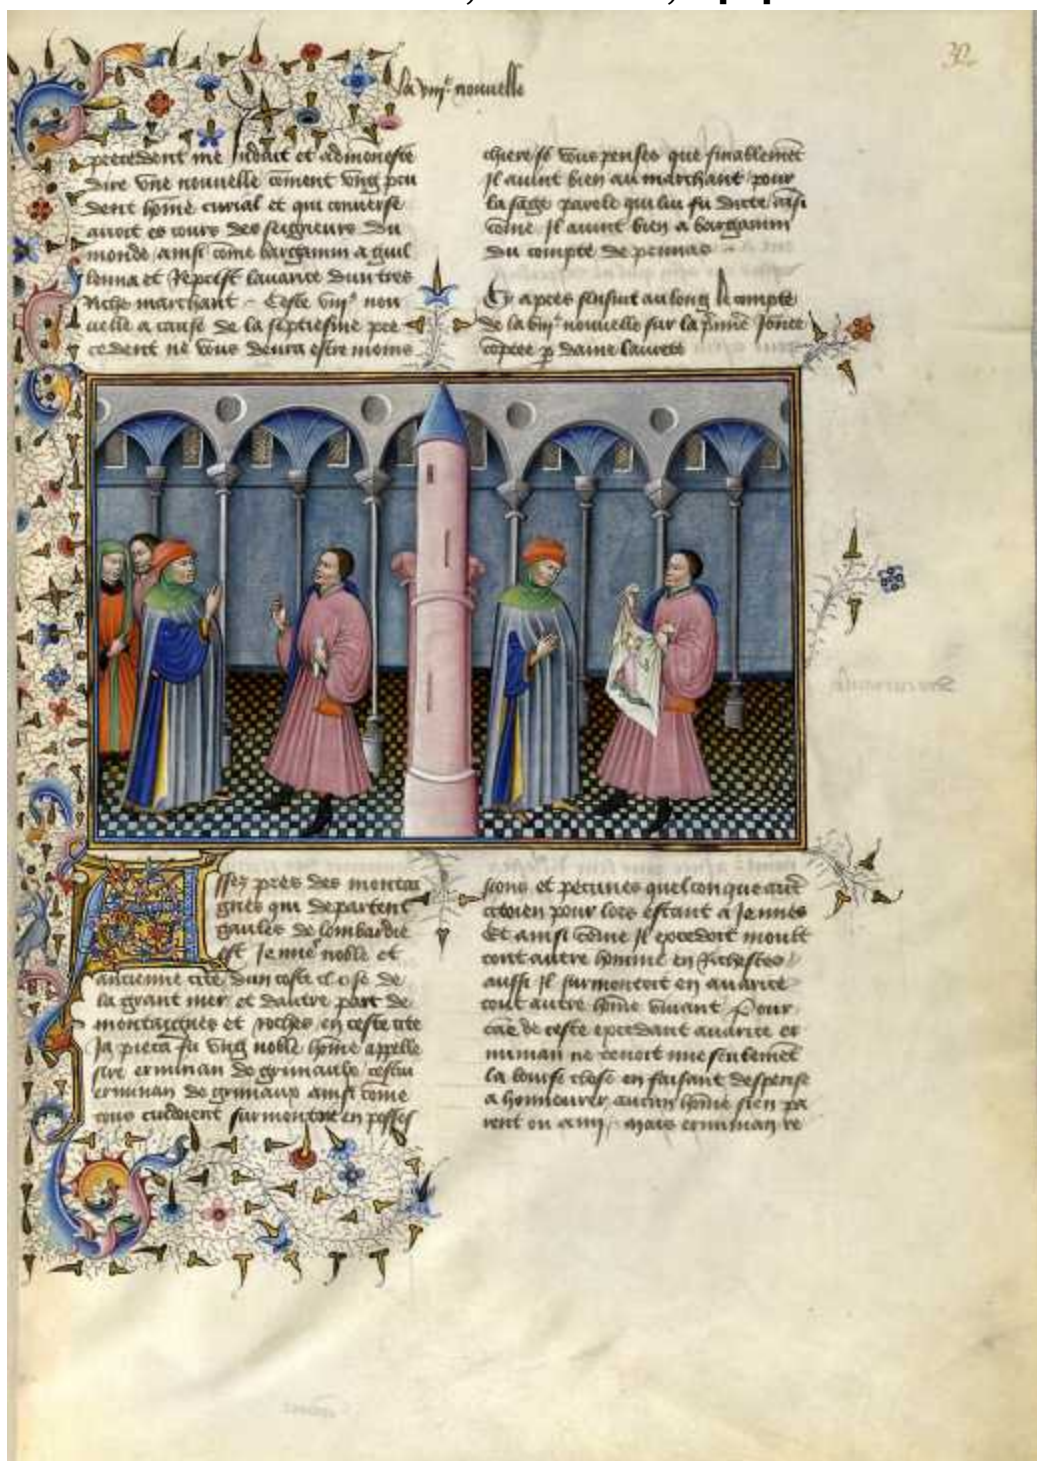 32
La viii.e nouvelle
precedent me induit et admoneste
dire vne nouuelle cõment vng pru
dent hõme curial et qui conuerse
auoit es cours des seigneurs du
monde ainsi cõme bargamin a guil
lenna et reprist lauarice dun tres
riche marchant Ceste viii.e nou
uelle a cause de la septiesme pre
cedent ne vous deura estre moins
chiere se vous penses que finablement
Il auint bien au marchant pour
la sage parole qui lui fu dicte ainsi
cõme Il auint bien a bargamin
du compte de pennas
Cy apres sensuit au long le compte
de la viii.e nouuelle sur la p̃miere Jornee
cõptee p̱ dame laurete
Assez pres des montai
gnes qui departent
gaules de lombardie
est Jenne noble et
ancienne cite dun coste close de
la grant mer et dautre part de
montaignes et roches en ceste cite
Ja pieca fu vng noble hõme appelle
sire erminan de grimaulx cestui
erminan de grimaux ainsi cõme
tous cuidoient surmontoit en posses
sions et pecunes quelconque autre
citoien pour lors estant a Jennes
Et ainsi cõme Il excedoit moult
tout autre homme en richesses
aussi Il surmontoit en auarice
tout autre hõme viuant Pour
de ceste excedant auarice er
minan ne tenoit mie seulement
la bourse close en faisant despense
a honnourer aucun hõme sien pa
rent ou amy mais erminan re